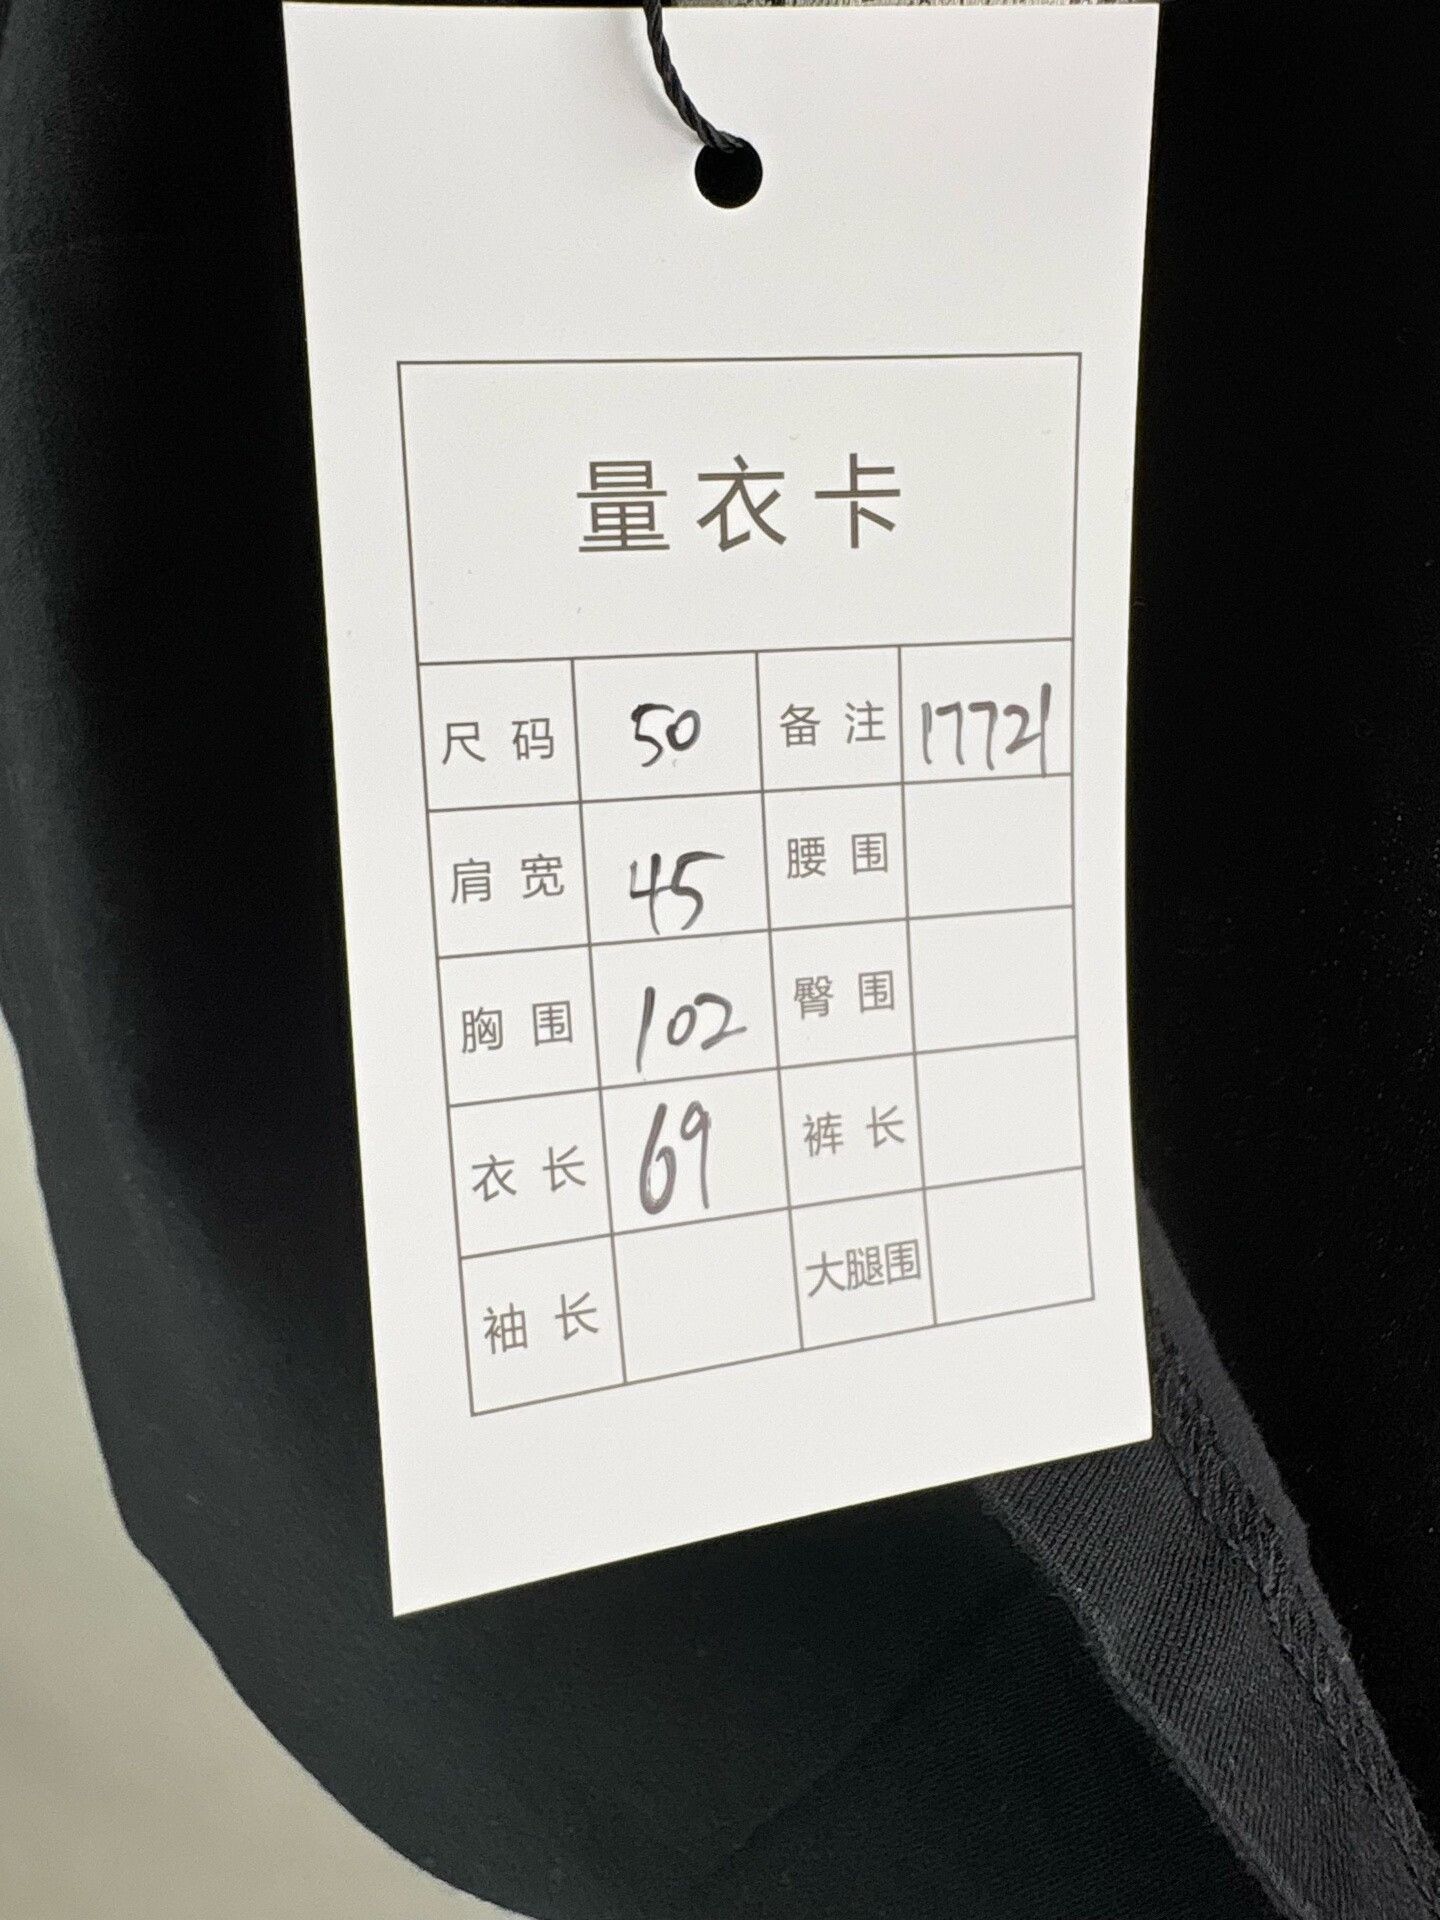 量衣卡
尺码 50 备注 17721
肩宽 45 腰围
胸围 102 臀围
衣长 69 裤长
袖长 大腿围